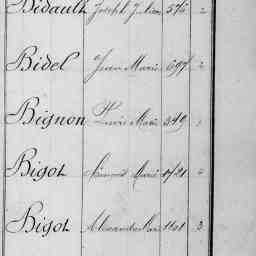 Bidault Joseph Julien 576 2
Bidel Jean Marie 697 2
Bignon Pierre Marie 349
Bigot Marie 1721
Bigot Alexandre Marie 1101 3